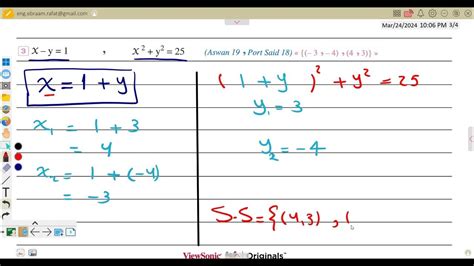 eng.ebraam.rafat@gmail.com
Mar/24/2024 10:06 PM 3/4
3 x - y = 1 , x² + y² = 25 (Aswan 19 , Port Said 18) « {(-3 , -4) , (4 , 3)} »
x = 1 + y
(1 + y)² + y² = 25
x₁ = 1 + 3
= 4
x₂ = 1 + (-4)
= -3
y₁ = 3
y₂ = -4
S.S = {(4,3) , (
ViewSonic Originals™